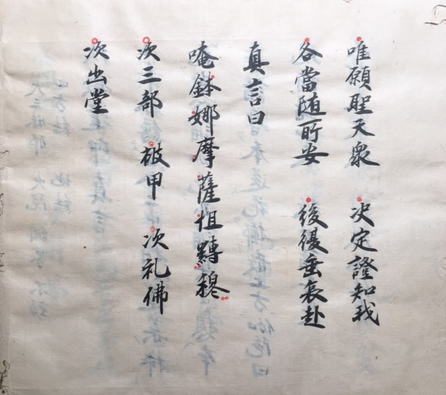 唯願聖天衆 决定證知我
各當随所安 後復垂哀赴
真言曰
唵鉢娜摩薩怛𪘨穆
次三部 次破甲 次礼佛
次出堂